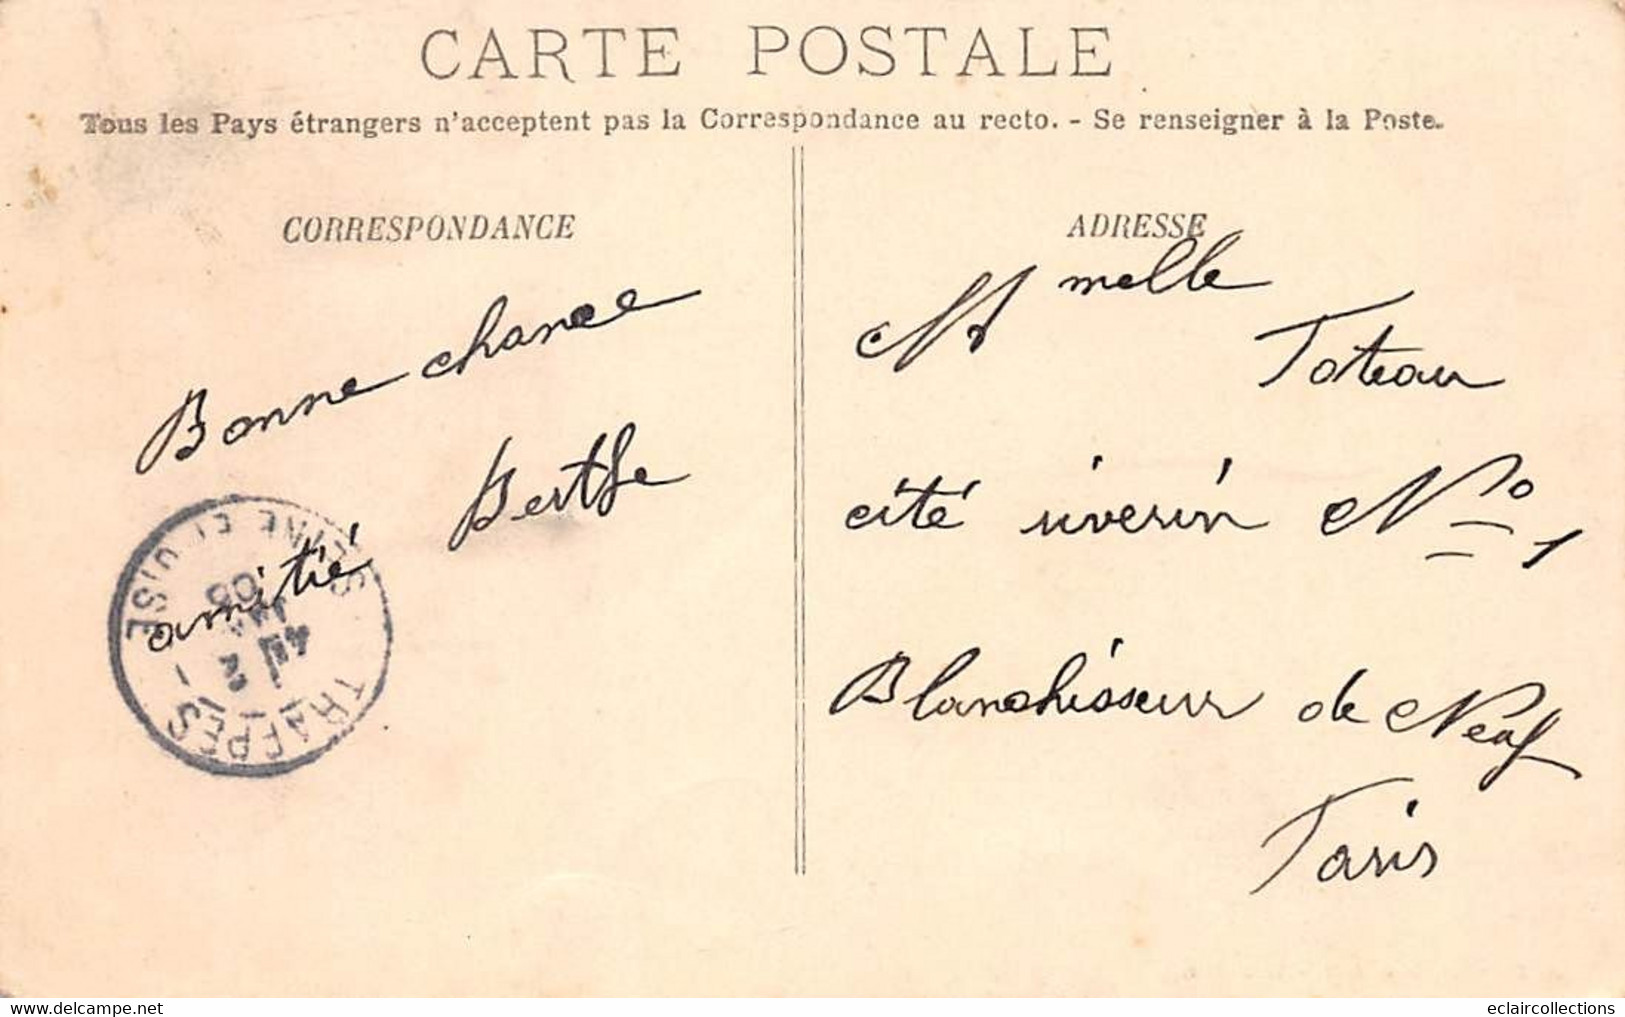 CARTE POSTALE
Tous les Pays étrangers n'acceptent pas la Correspondance au recto. - Se renseigner à la Poste.
CORRESPONDANCE
Bonne chance
Berthe
amitié
TRAPPES
SEINE ET OISE
ADRESSE
Mr melle
Toteau
cité
N° 1
Blanchisseur de Neuf
Paris
eclaircollections